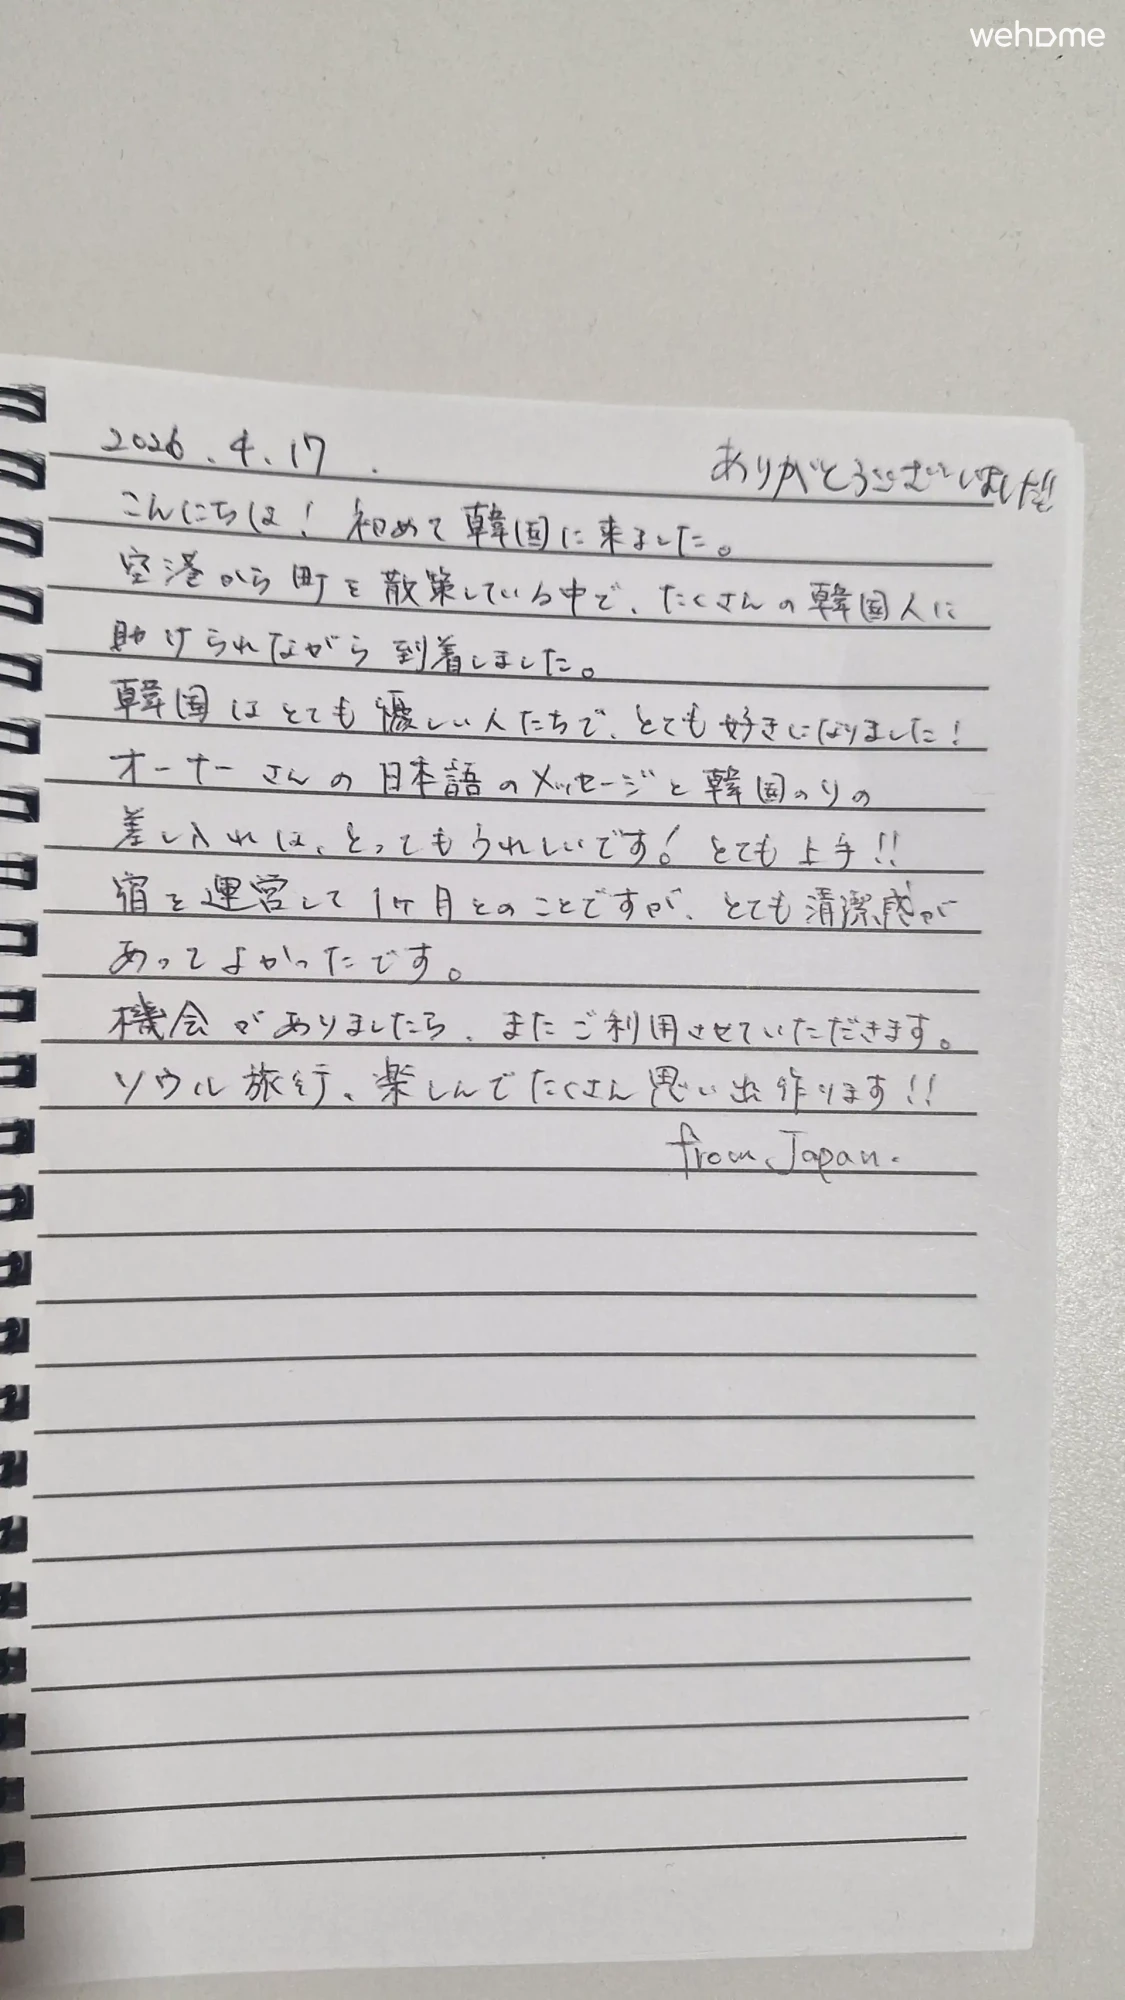 wehome
2026.4.17.
ありがとうございました!!
こんにちは! 初めて韓国に来ました。
空港から町を散策している中で、たくさんの韓国人に
助けられながら到着しました。
韓国はとても優しい人たちで、とても好きになりました!
オーナーさんの日本語のメッセージと韓国のりの
差し入れは、とってもうれしいです! とても上手!!
宿を運営して1ヶ月とのことですが、とても清潔感が
あってよかったです。
機会がありましたら、またご利用させていただきます。
ソウル旅行、楽しんでたくさん思い出作ります!!
from Japan.